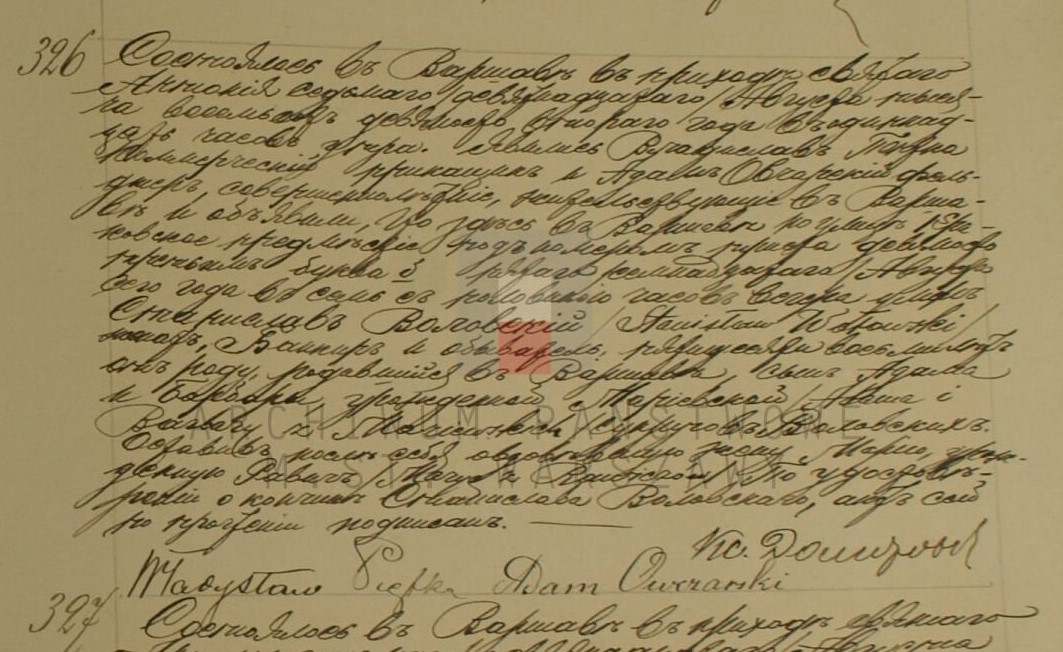 326 Состоялось въ Варшавѣ въ приходѣ святаго
Антонія седьмаго /девятнадцатаго/ Августа тыся-
ча восемьсотъ девяносто втораго года въ одиннад-
цать часовъ утра. Явились Владиславъ
Коммерческій прикащикъ и Адамъ Овчарскій фель-
дшеръ, совершеннолѣтніе, жительствующіе въ Варша-
вѣ и объявили, что здѣсь въ Варшавѣ по улицѣ Кра-
ковское предмѣстіе подъ номеромъ триста девяносто
третьимъ буква б /семнадцатаго/ Августа
сего года въ семь съ половиною часовъ вечера умеръ
Станиславъ Воловскій /Stanisław Wołowski/
Банкиръ и обыватель, пятидесяти восьми лѣтъ
отъ роду, родившійся въ Варшавѣ сынъ Адама
и Барбары урожденной /Adama i
Barbary z супруговъ Воловскихъ.
Оставивъ послѣ себя овдовѣвшую жену Марію, урож-
денную По удостовѣ-
реніи о кончинѣ Станислава Воловскаго, актъ сей
по прочтеніи подписанъ.
Кс.
Władysław Adam Owczarski
327 Состоялось въ Варшавѣ въ приходѣ святаго
Августа
ARCHIWUM PAŃSTWOWE
M.ST. WARSZAWY